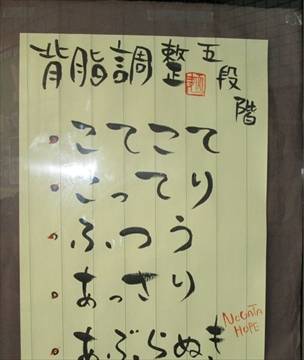 背脂調整五段階
こてこて
こってり
ふつう
あっさり
あぶらぬき
NOGATA
HOPE